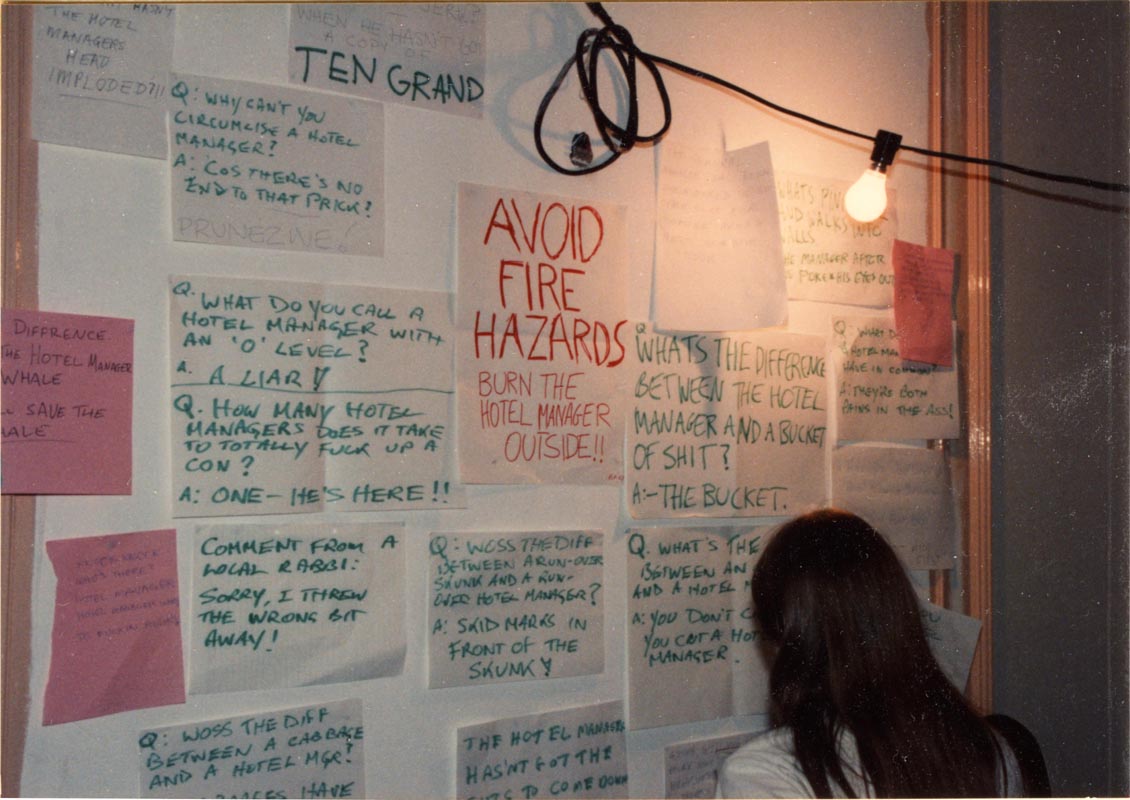 HASN'T
THE HOTEL
MANAGERS
HEAD
IMPLODED?!!
JERK?
WHEN HE HASN'T GOT
A COPY OF
TEN GRAND
Q: WHY CAN'T YOU
CIRCUMCISE A HOTEL
MANAGER?
A: 'COS THERE'S NO
END TO THAT PRICK?
PRUNEZINE!
AVOID
FIRE
HAZARDS
BURN THE
HOTEL MANAGER
OUTSIDE!!
WHATS PIN
AND WALKS INTO
WALLS
THE MANAGER AFTER
POKE HIS EYES OUT
DIFFRENCE.
THE HOTEL MANAGER
WHALE
SAVE THE
WHALE
Q. WHAT DO YOU CALL A
HOTEL MANAGER WITH
AN 'O' LEVEL?
A. A LIAR!
Q. HOW MANY HOTEL
MANAGERS DOES IT TAKE
TO TOTALLY FUCK UP A
CON?
A: ONE - HE'S HERE!!
Q WHATS THE DIFFERENCE
BETWEEN THE HOTEL
MANAGER AND A BUCKET
OF SHIT?
A:- THE BUCKET.
Q: WHAT DO
A HOTEL MAN
HAVE IN COMMON?
A: THEY'RE BOTH
PAINS IN THE ASS!
KNOCK KNOCK
WHO'S THERE?
HOTEL MANAGER
HOTEL MANAGER WHO
COMMENT FROM A
LOCAL RABBI:
SORRY, I THREW
THE WRONG BIT
AWAY!
Q: WOSS THE DIFF
BETWEEN A RUN-OVER
SKUNK AND A RUN-
OVER HOTEL MANAGER?
A: SKID MARKS IN
FRONT OF THE
SKUNK!
Q. WHAT'S THE
BETWEEN AN
AND A HOTEL M
A: YOU DON'T C
YOU CUT A HOT
MANAGER.
Q: WOSS THE DIFF
BETWEEN A CABBAGE
AND A HOTEL MGR?
HAVE
THE HOTEL MANAGER
HASN'T GOT THE
TO COME DOWN